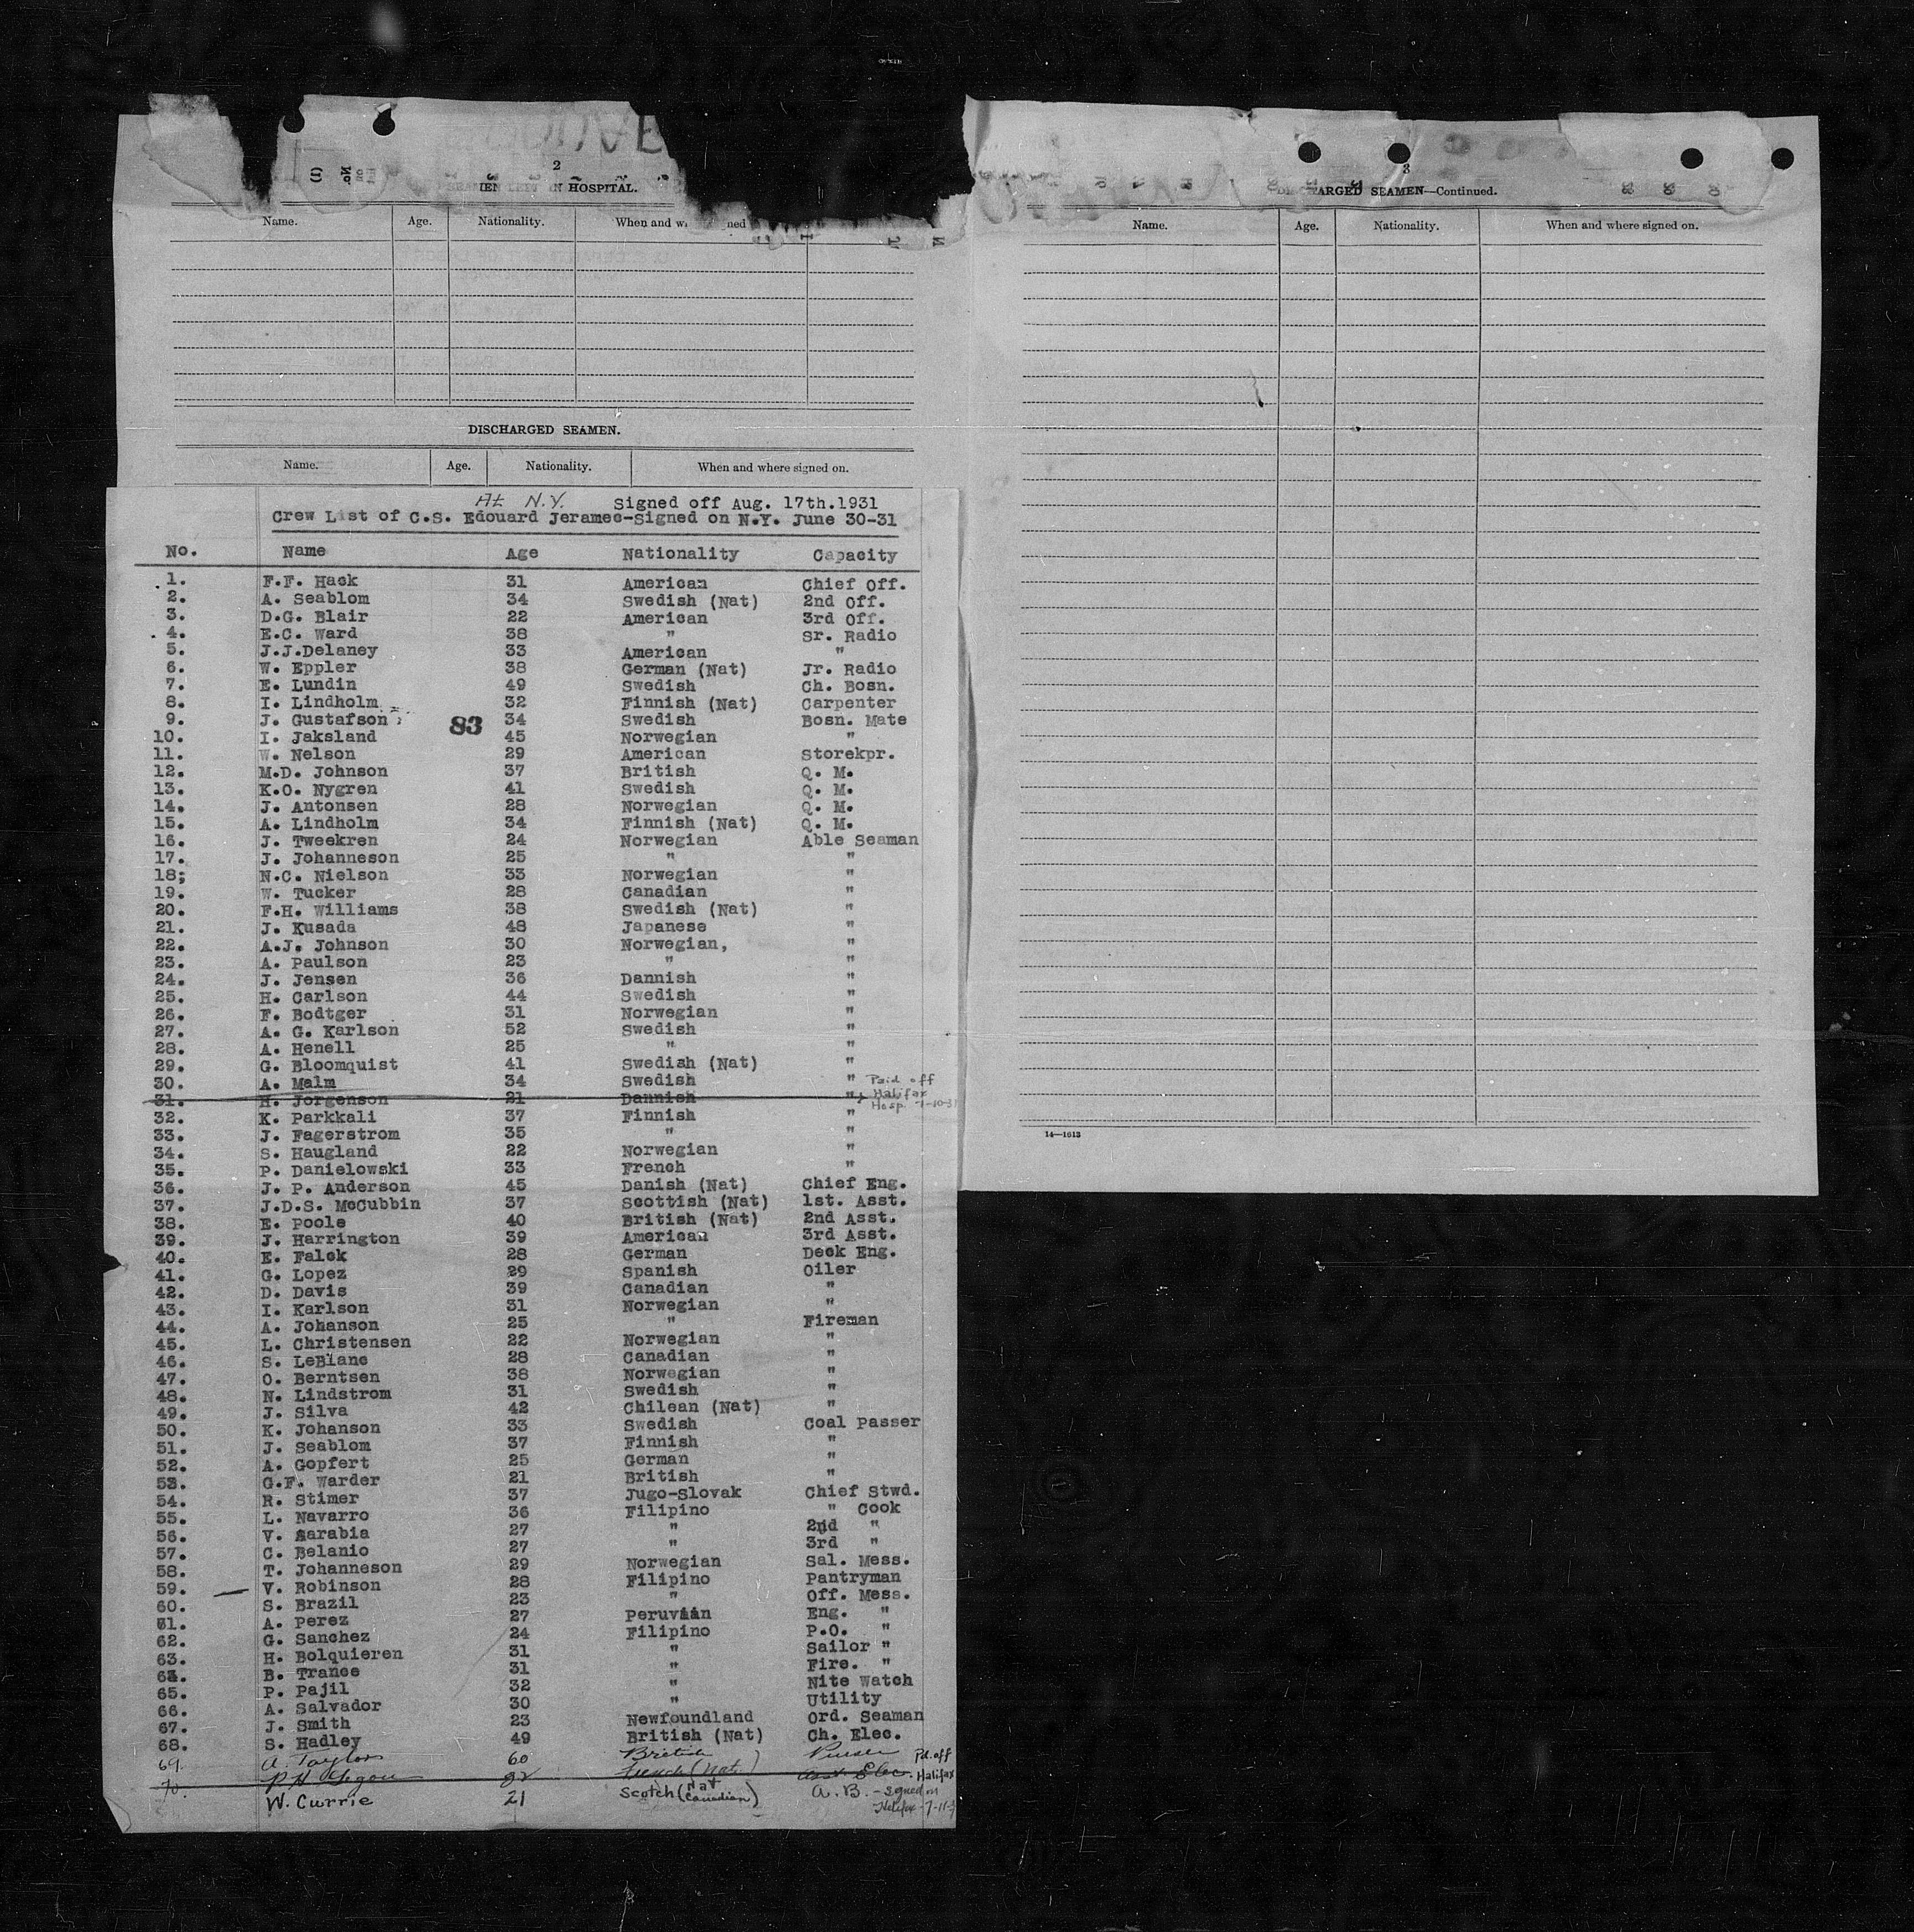 2
IN HOSPITAL.
Name. Age. Nationality. When and
DISCHARGED SEAMEN.
Name. Age. Nationality. When and where signed on.
At N.Y. Signed off Aug. 17th.1931
Crew List of C.S. Edouard Jeramec-Signed on N.Y. June 30-31
No. Name Age Nationality Capacity
1. F.F. Hack 31 American Chief Off.
2. A. Seablom 34 Swedish (Nat) 2nd Off.
3. D.G. Blair 22 American 3rd Off.
4. E.C. Ward 38 " Sr. Radio
5. J.J.Delaney 33 American "
6. W. Eppler 38 German (Nat) Jr. Radio
7. E. Lundin 49 Swedish Ch. Bosn.
8. I. Lindholm 32 Finnish (Nat) Carpenter
9. J. Gustafson 83 34 Swedish Bosn. Mate
10. I. Jaksland 45 Norwegian "
11. W. Nelson 29 American Storekpr.
12. M.D. Johnson 37 British Q. M.
13. K.O. Nygren 41 Swedish Q. M.
14. J. Antonsen 28 Norwegian Q. M.
15. A. Lindholm 34 Finnish (Nat) Q. M.
16. J. Tweekren 24 Norwegian Able Seaman
17. J. Johanneson 25 " "
18; N.C. Nielson 33 Norwegian "
19. W. Tucker 28 Canadian "
20. F.H. Williams 38 Swedish (Nat) "
21. J. Kusada 48 Japanese "
22. A.J. Johnson 30 Norwegian, "
23. A. Paulson 23 " "
24. J. Jensen 36 Dannish "
25. H. Carlson 44 Swedish "
26. F. Bodtger 31 Norwegian "
27. A. G. Karlson 52 Swedish "
28. A. Henell 25 " "
29. G. Bloomquist 41 Swedish (Nat) "
30. A. Malm 34 Swedish "
31. H. Jorgenson 21 Dannish " Paid off Halifax Hosp.
32. K. Parkkali 37 Finnish "
33. J. Fagerstrom 35 " "
34. S. Haugland 22 Norwegian "
35. P. Danielowski 33 French "
36. J. P. Anderson 45 Danish (Nat) Chief Eng.
37. J.D.S. McCubbin 37 Scottish (Nat) 1st. Asst.
38. E. Poole 40 British (Nat) 2nd Asst.
39. J. Harrington 39 American 3rd Asst.
40. E. Falck 28 German Deck Eng.
41. G. Lopez 29 Spanish Oiler
42. D. Davis 39 Canadian "
43. I. Karlson 31 Norwegian "
44. A. Johanson 25 " Fireman
45. L. Christensen 22 Norwegian "
46. S. LeBlanc 28 Canadian "
47. O. Berntsen 38 Norwegian "
48. N. Lindstrom 31 Swedish "
49. J. Silva 42 Chilean (Nat) "
50. K. Johanson 33 Swedish Coal Passer
51. J. Seablom 37 Finnish "
52. A. Gopfert 25 German "
53. G.F. Warder 21 British "
54. R. Stimer 37 Jugo-Slovak Chief Stwd.
55. L. Navarro 36 Filipino " Cook
56. V. Sarabia 27 " 2nd "
57. C. Belanio 27 " 3rd "
58. T. Johanneson 29 Norwegian Sal. Mess.
59. V. Robinson 28 Filipino Pantryman
60. S. Brazil 23 " Off. Mess.
61. A. Perez 27 Peruvian Eng. "
62. G. Sanchez 24 Filipino P.O. "
63. H. Bolquieren 31 " Sailor "
64. B. Trance 31 " Fire. "
65. P. Pajil 32 " Nite Watch
66. A. Salvador 30 " Utility
67. J. Smith 23 Newfoundland Ord. Seaman
68. S. Hadley 49 British (Nat) Ch. Elec.
69. A. Taylor 60 British Purser
70. French (Nat) Asst. Elec. Pd. off Halifax
W. Currie 21 Scotch (Nat Canadian) A. B. - signed on Halifax
3
DISCHARGED SEAMEN—Continued.
Name. Age. Nationality. When and where signed on.
14—1613